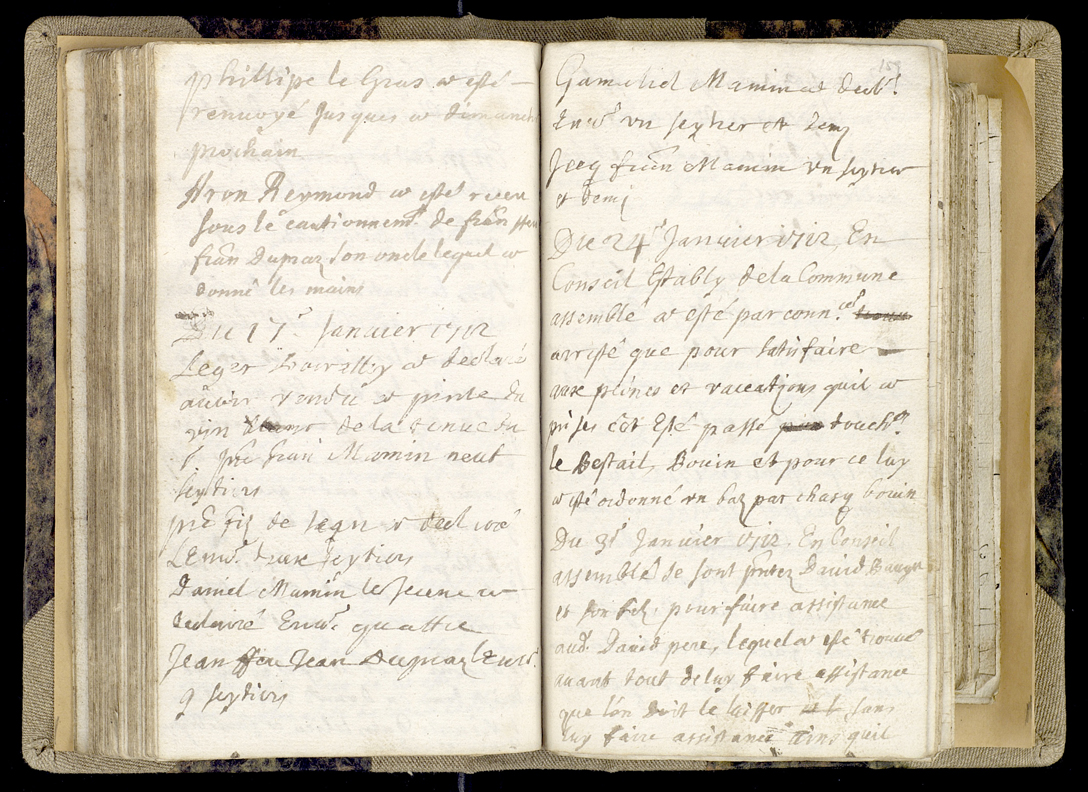 phillipe le Gras a esté
renvoyé jusques a dimanch
prochain
Aron Reymond a esté receu
sous le cautionnemt de frãn
frãn Dumaz son oncle lequel a
donné les mains
Du 17e Janvier 1712
Leger a declaré
avoir vendu a pinte du
vin de la venue du
frãn Mamin neuf
seytiers
fiz de Jean a declaré
Env. traze seytiers
Daniel Mamin le Jeune a
declairé Env. quattre
Jean ffeu Jean Dumaz Env.
9 seytiers
159
Gamaliel Mamin a declr.
Env. un seytier et demj
Jeeg frãn Mamin un seytier
et demj
Du 24e Janvier 1712, En
Conseil Estably de la Commune
assemblé a esté par conn.ce
arresté que pour satisfaire
aux peines et vaccations quil a
prises Esté passé touchant
le Bestail, Bouin et pour ce luy
a esté ordonné un baz par chasq bouin
Du 31e Janvier 1712, En Conseil
assemblé se sont pñtez David
et son filz, pour faire assistance
aud. David pere, lequel a esté trouvé
avant tout de luy faire assistance
que lon doit le laisser sans
luy faire assistance quil